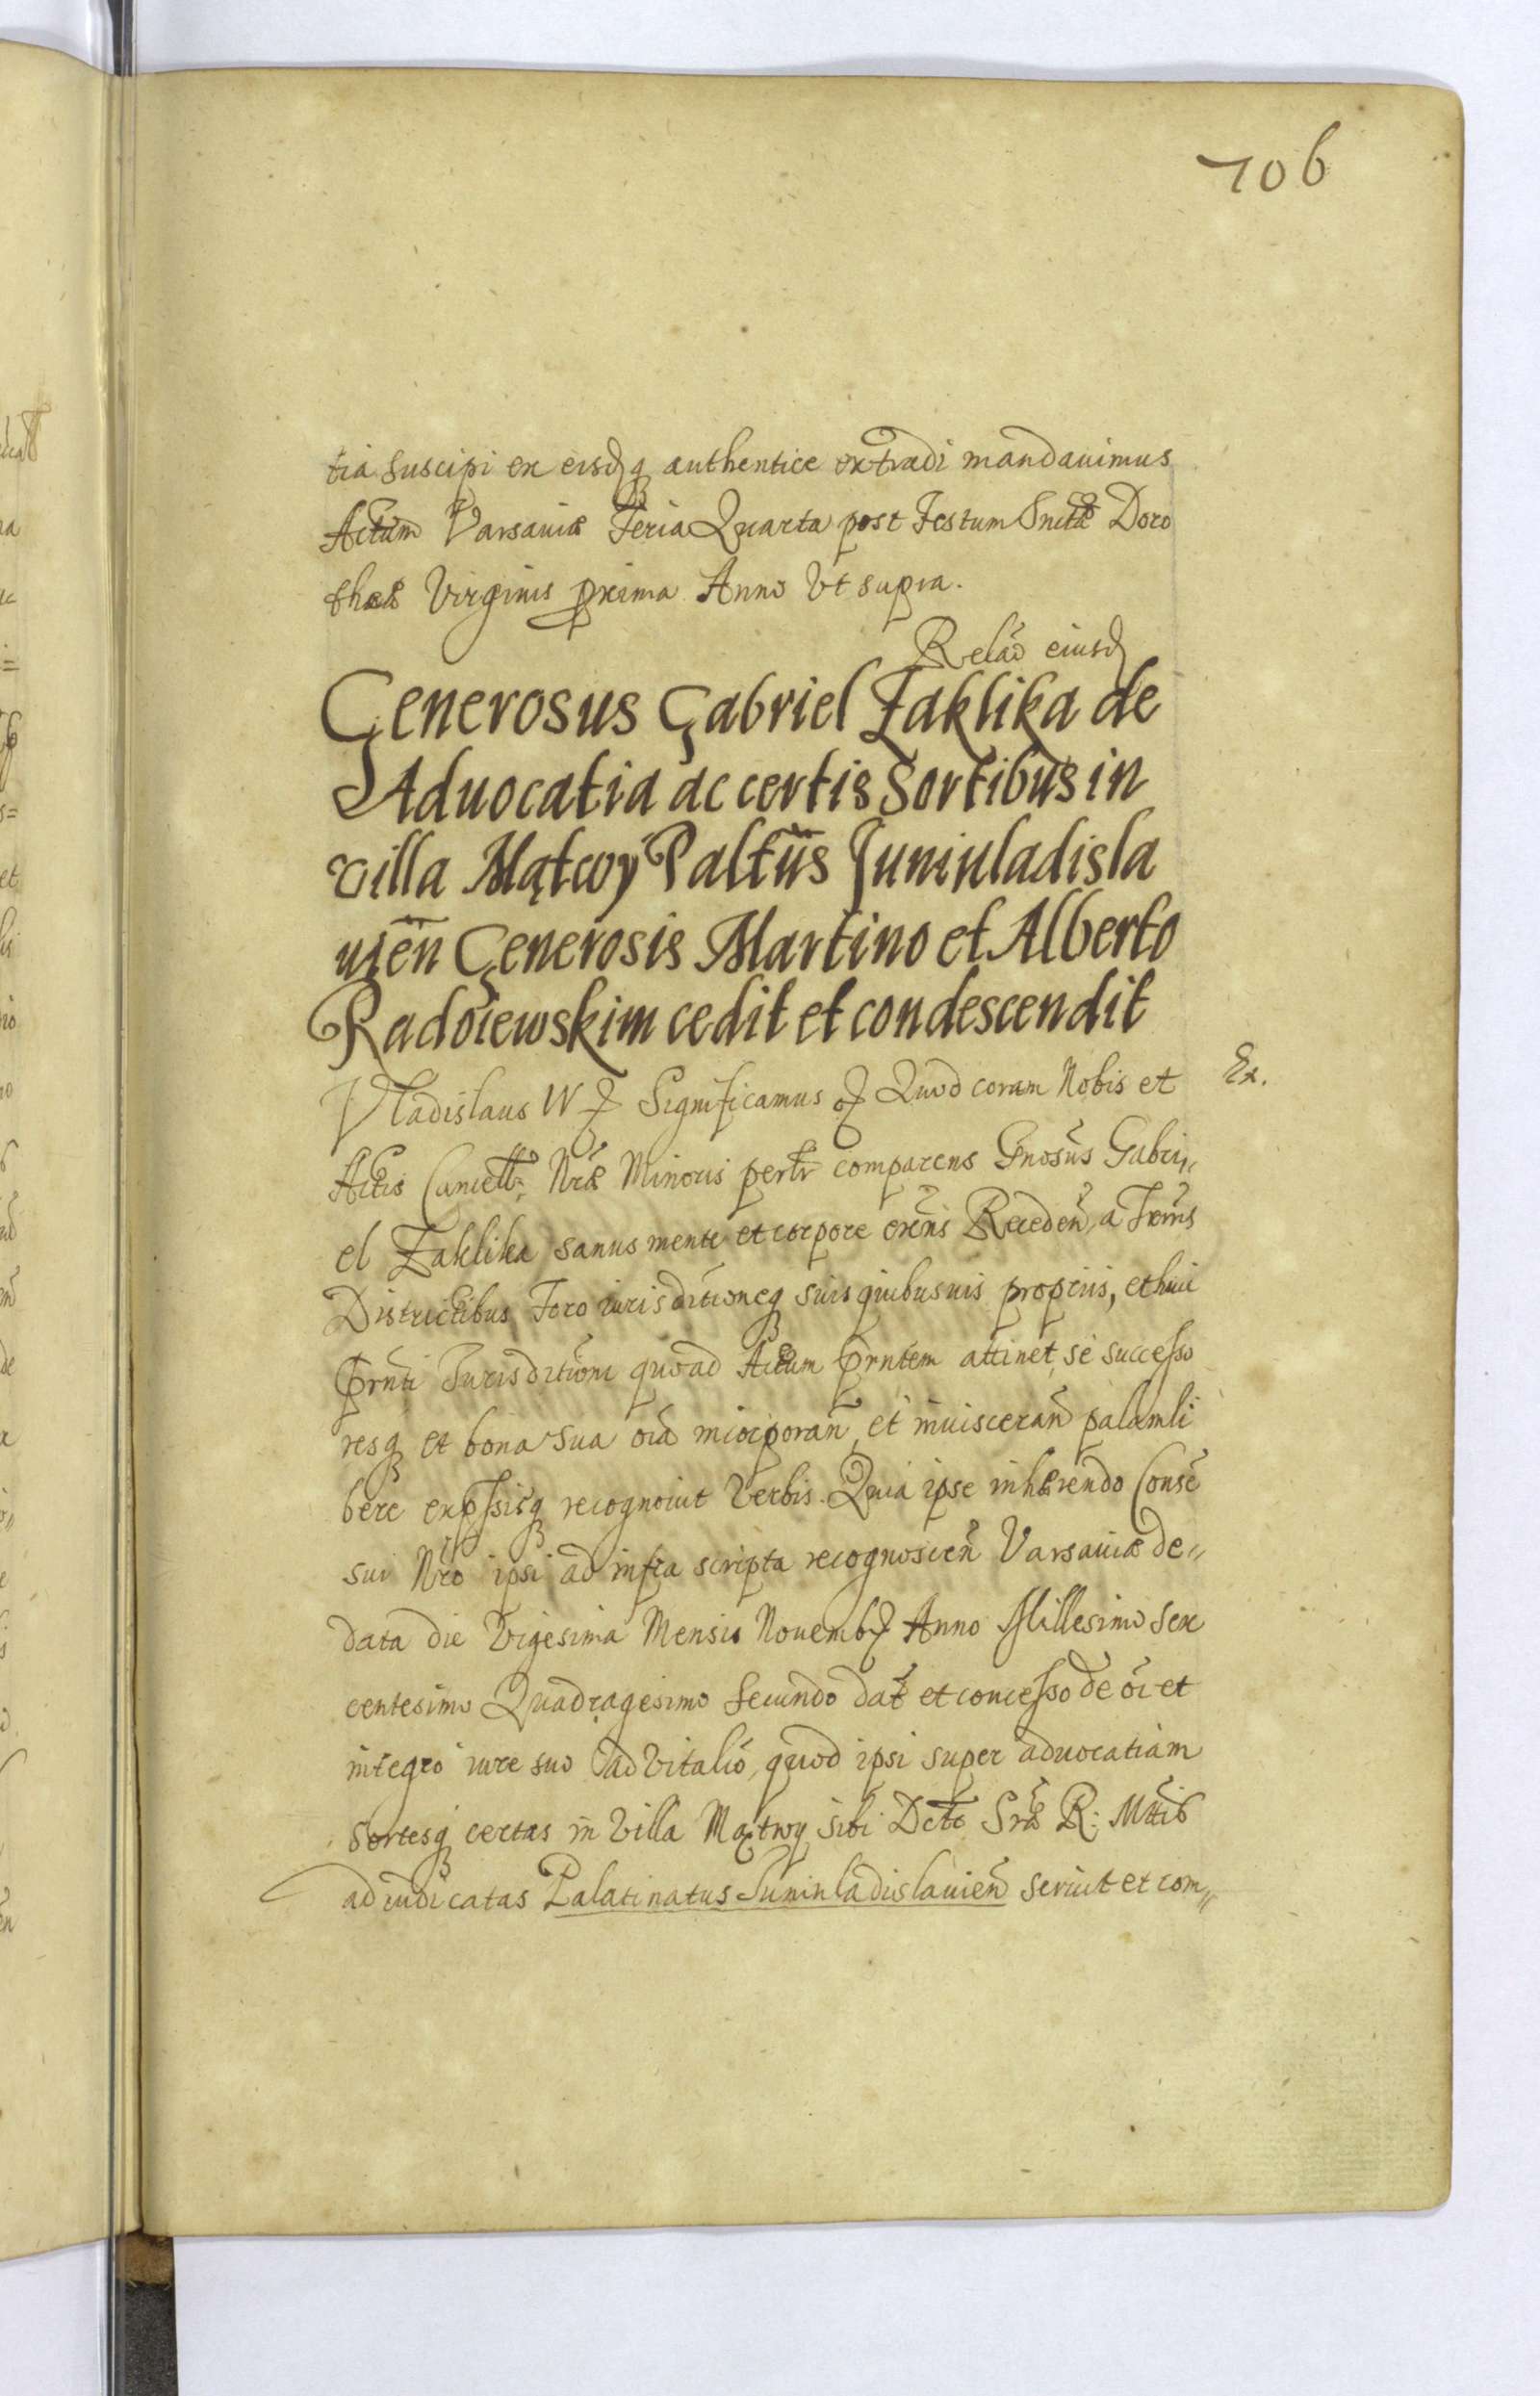 106
tia suscipi ex eisdq authentice extradi mandauimus
Actum Varsauiæ Feria Quarta post Festum Snctæ Doro
theæ Virginis prxima Anno Vt supra.
Relaõ eiusd
Generosus Gabriel Zaklika de
Aduocatia ac certis Sortibus in
villa Mątwy Paltus Juniuladisla
uień Generosis Martino et Alberto
Radoiewskim cedit et condescendit
Vladislaus IV Significamus Quod coram Nobis et
Ex.
Actis Cancell: Nræ Minoris perlr comparens Gnosus Gabri„
el Zaklika sanus mente et corpore exñs Receden̄ a Terris
Districtibus Foro iurisditioneq suis quibusuis proprijs, et huic
Prnti Jurisditioni quoad Actum Prntem attinet, se successo
resq et bona sua oia incorporan̄, et inuisceran̄ palam li
bere expssisq recognouit Verbis. Quia ipse inhærendo Conse
sui Nro ipsi ad infra scripta recognoscen̄ Varsauiæ de„
data die Vigesima Mensis Nouemb Anno Millesimo Sex
centesimo Quadragesimo Secundo dat et concesso de oi et
integro iure suo aduitalio, quod ipsi super aduocatiam
sortesq certas in Villa Mątwy sibi Dcto Sræ R: Mttis
adiudicatas Palatinatus Juniuladislauien̄ seruit et com„